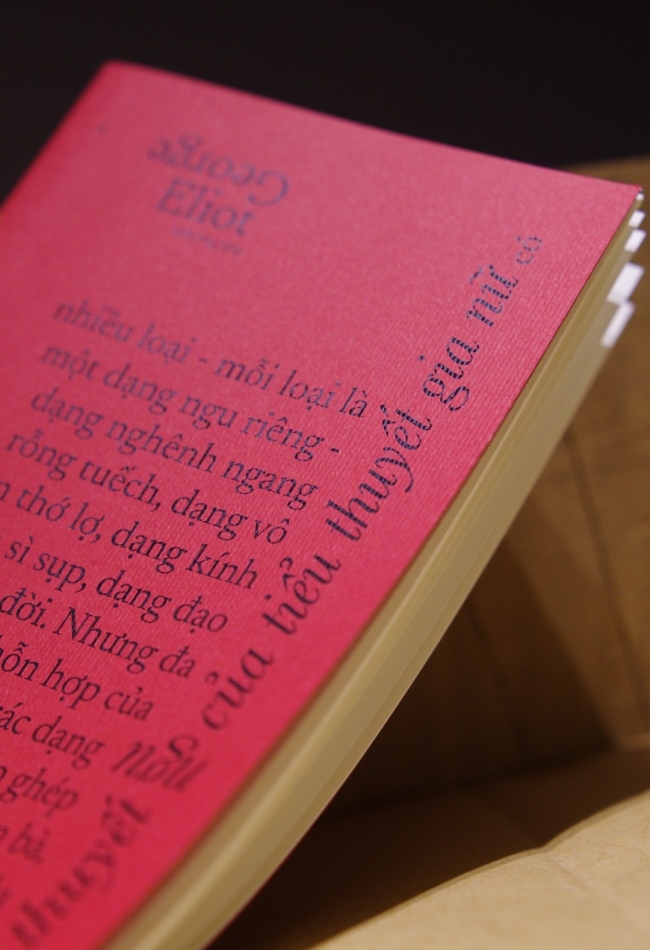 George
Eliot
nhiều loại - mỗi loại là
một dạng ngu riêng -
dạng nghênh ngang
rỗng tuếch, dạng vô
thớ lợ, dạng kính
sì sụp, dạng đạo
đời. Nhưng đa
hỗn hợp của
dạng
ghép
thuyết
của tiểu thuyết gia nữ có